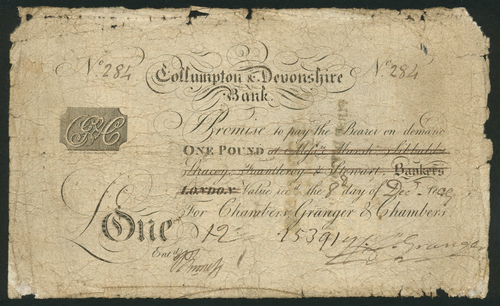 No. 284 No. 284
Collumpton & Devonshire
Bank.
I Promise to pay the Bearer on demand
ONE POUND at Messrs. Marsh Sibbald &
Stracey Fauntleroy & Stewart, Bankers
LONDON Value recd. the 8 day of Decr.
For Chambers, Granger & Chambers.
£One
12
15391
Granger
Entd.